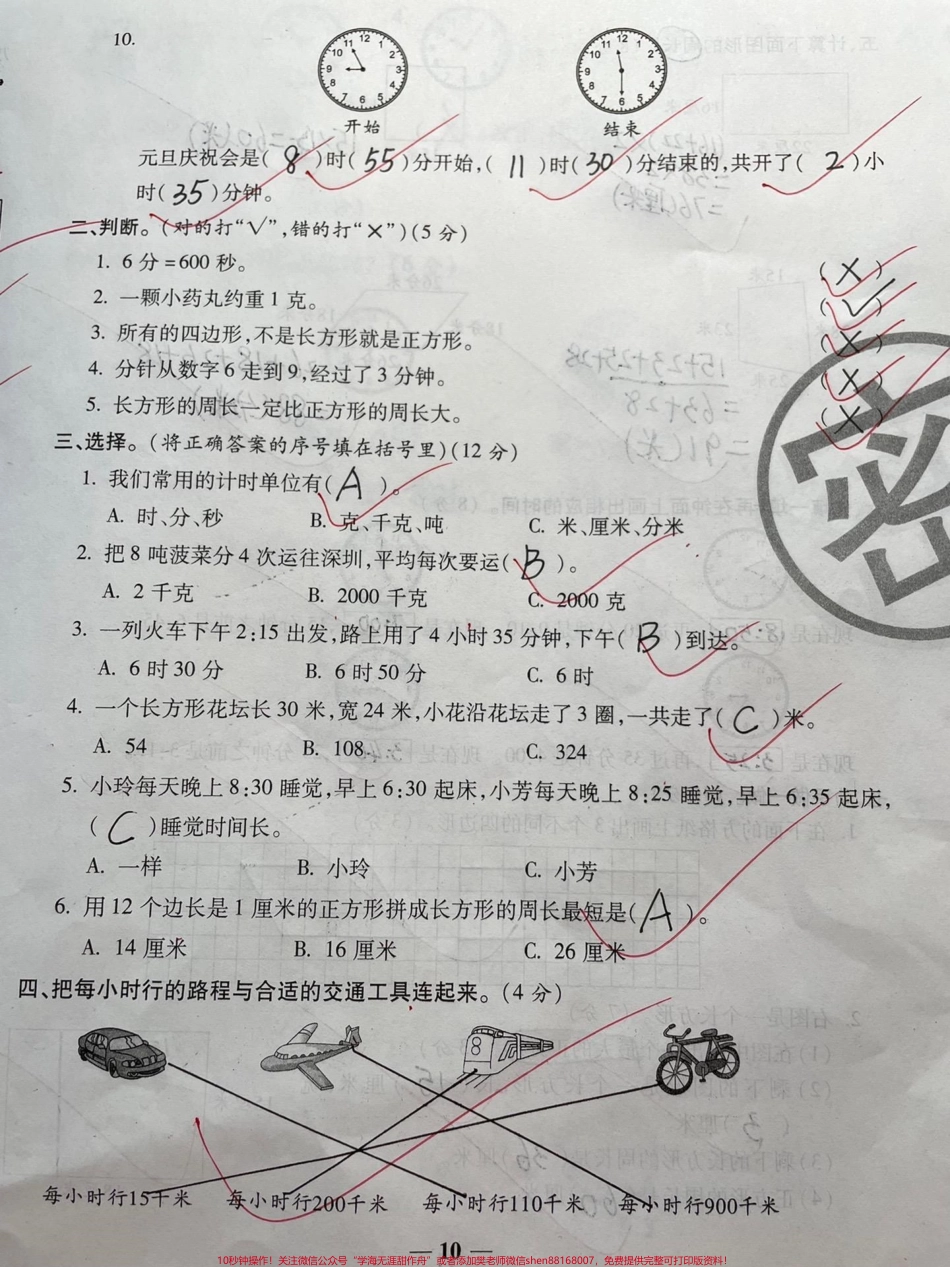 10.
12 1 2 3 4 5 6 7 8 9 10 11
12 1 2 3 4 5 6 7 8 9 10 11
开始
结束
元旦庆祝会是( 8 )时( 55 )分开始,( 11 )时( 30 )分结束的,共开了( 2 )小
时( 35 )分钟。
二、判断。(对的打“√”,错的打“×”)(5 分)
1. 6 分=600 秒。 (×)
2. 一颗小药丸约重 1 克。 (√)
3. 所有的四边形,不是长方形就是正方形。 (×)
4. 分针从数字 6 走到 9,经过了 3 分钟。 (×)
5. 长方形的周长一定比正方形的周长大。 (×)
密
三、选择。(将正确答案的序号填在括号里)(12 分)
1. 我们常用的计时单位有( A )。
A. 时、分、秒 B. 克、千克、吨 C. 米、厘米、分米
2. 把 8 吨菠菜分 4 次运往深圳,平均每次要运( B )。
A. 2 千克 B. 2000 千克 C. 2000 克
3. 一列火车下午 2:15 出发,路上用了 4 小时 35 分钟,下午( B )到达。
A. 6 时 30 分 B. 6 时 50 分 C. 6 时
4. 一个长方形花坛长 30 米,宽 24 米,小花沿花坛走了 3 圈,一共走了( C )米。
A. 54 B. 108 C. 324
5. 小玲每天晚上 8:30 睡觉,早上 6:30 起床,小芳每天晚上 8:25 睡觉,早上 6:35 起床,
( C )睡觉时间长。
A. 一样 B. 小玲 C. 小芳
6. 用 12 个边长是 1 厘米的正方形拼成长方形的周长最短是( A )。
A. 14 厘米 B. 16 厘米 C. 26 厘米
四、把每小时行的路程与合适的交通工具连起来。(4 分)
8
每小时行15千米 每小时行200千米 每小时行110千米 每小时行900千米
— 10 —
10秒钟操作!关注微信公众号“学海无涯甜作舟”或者添加樊老师微信shen88168007,免费提供完整可打印版资料!